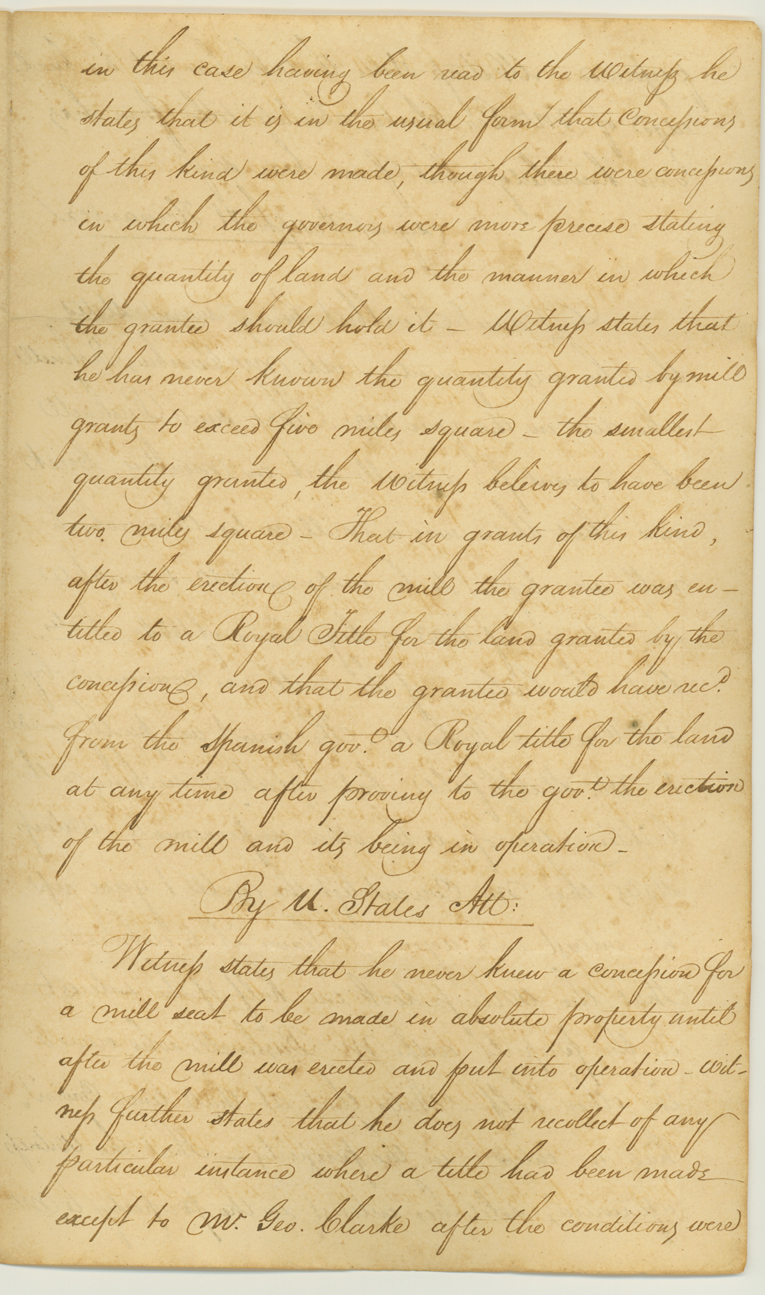 in this case having been read to the Witness he
states that it is in the usual form that Concessions
of this kind were made, though there were concessions
in which the governors were more precise stating
the quantity of land and the manner in which
the grantee should hold it – Witness states that
he has never known the quantity granted by mill
grants to exceed five miles square – the smallest
quantity granted, the Witness believes to have been
two miles square – That in grants of this kind,
after the erection of the mill the grantee was en–
titled to a Royal Title for the land granted by the
concession, and that the grantee would have recd.
from the Spanish govt. a Royal title for the land
at any time after proving to the govt. the erection
of the mill and its being in operation –
By U. States Att:
Witness states that he never knew a concession for
a mill seat to be made in absolute property until
after the mill was erected and put into operation – Wit–
ness further states that he does not recollect of any
particular instance where a title had been made
except to Mr. Geo. Clarke after the conditions were